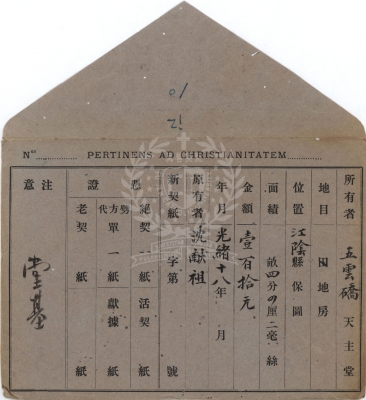 01
12
Nᵒˢ PERTINENS AD CHRISTIANITATEM
所有者 五雲礄 天主堂
地目 田地房
位置 江陰縣 保圖
面積 畝四分 厘二毫 絲
金額 壹百拾元
年月 光緒十八年 月
原有者 沈獻祖
新契紙 字第 號
憑證 絕契 紙 活契 紙
方單 一 紙 獻據 紙
老契 紙 紙
注意 堂基